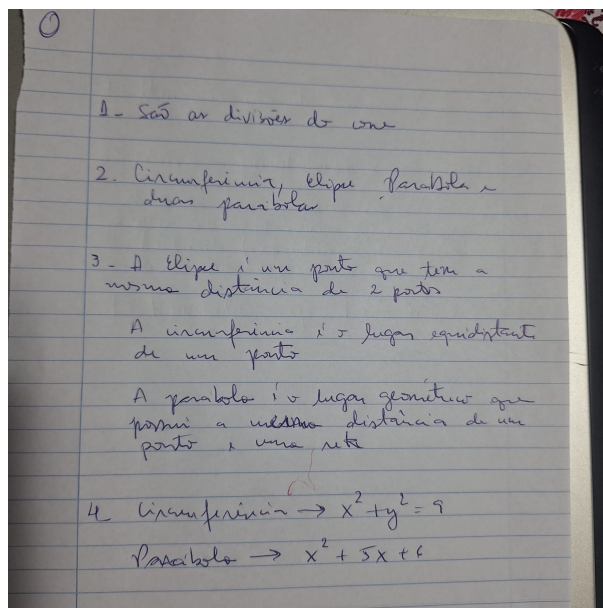 1- São as divisões do cone
2. Circunferência, Elipse, Parabola e
duas parábolas
3- A Elipse é um ponto que tem a
mesma distância de 2 pontos
A circunferência é o lugar equidistante
de um ponto
A parabola é o lugar geométrico que
possui a mesma distância de um
ponto e uma reta
4 Circunferência → x² + y² = 9
Parábola → x² + 5x + 6